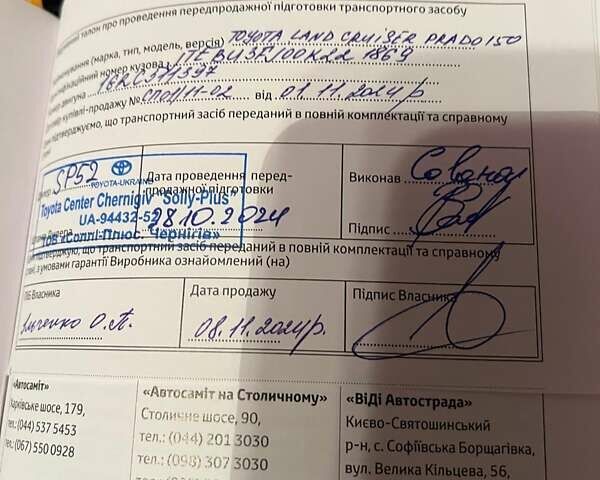 талон про проведення передпродажної підготовки транспортного засобу
(марка, тип, модель, версія) TOYOTA LAND CRUISER PRADO 150
номер кузова JTEBU3FJ00K221869
двигуна 1GRC571397
купівлі-продажу № СП01/11-02 від 01.11.2024р
підтверджуємо, що транспортний засіб переданий в повній комплектації та справному
SP52
TOYOTA-UKRAINE
Toyota Center Chernigiv "Solly-Plus"
UA-94432-52
ТОВ «Соллі-Плюс. Чернігів»
Дата проведення перед-
продажної підготовки
28.10.2024
Виконав
Підпис
що транспортний засіб переданий в повній комплектації та справному
стані, з умовами гарантії Виробника ознайомлений (на)
ПІБ Власника
О.П.
Дата продажу
08.11.2024р.
Підпис Власника
«Автосаміт»
Харківське шосе, 179,
тел.: (044) 537 5453
тел.: (067) 550 0928
«Автосаміт на Столичному»
Столичне шосе, 90,
тел.: (044) 201 3030
тел.: (098) 307 3030
«ВіДі Автострада»
Києво-Святошинський
р-н, с. Софіївська Борщагівка,
вул. Велика Кільцева, 56,